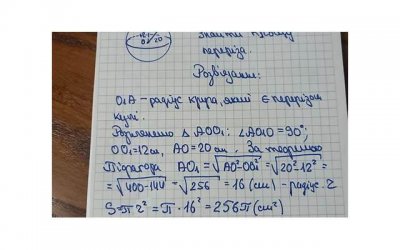 Знайти площу
перерізa.
Розвязання:
O₁A - радіус круга, який є перерізом
кулі.
Розглянемо △ AOO₁: ∠AO₁O = 90°;
OO₁=12см, AO=20см. За теоремою
Піфагора AO₁ = √AO²-OO₁² = √20²-12² =
= √400-144 = √256 = 16 (см) - радіус. r
S=πr² = π·16² = 256π (см²)